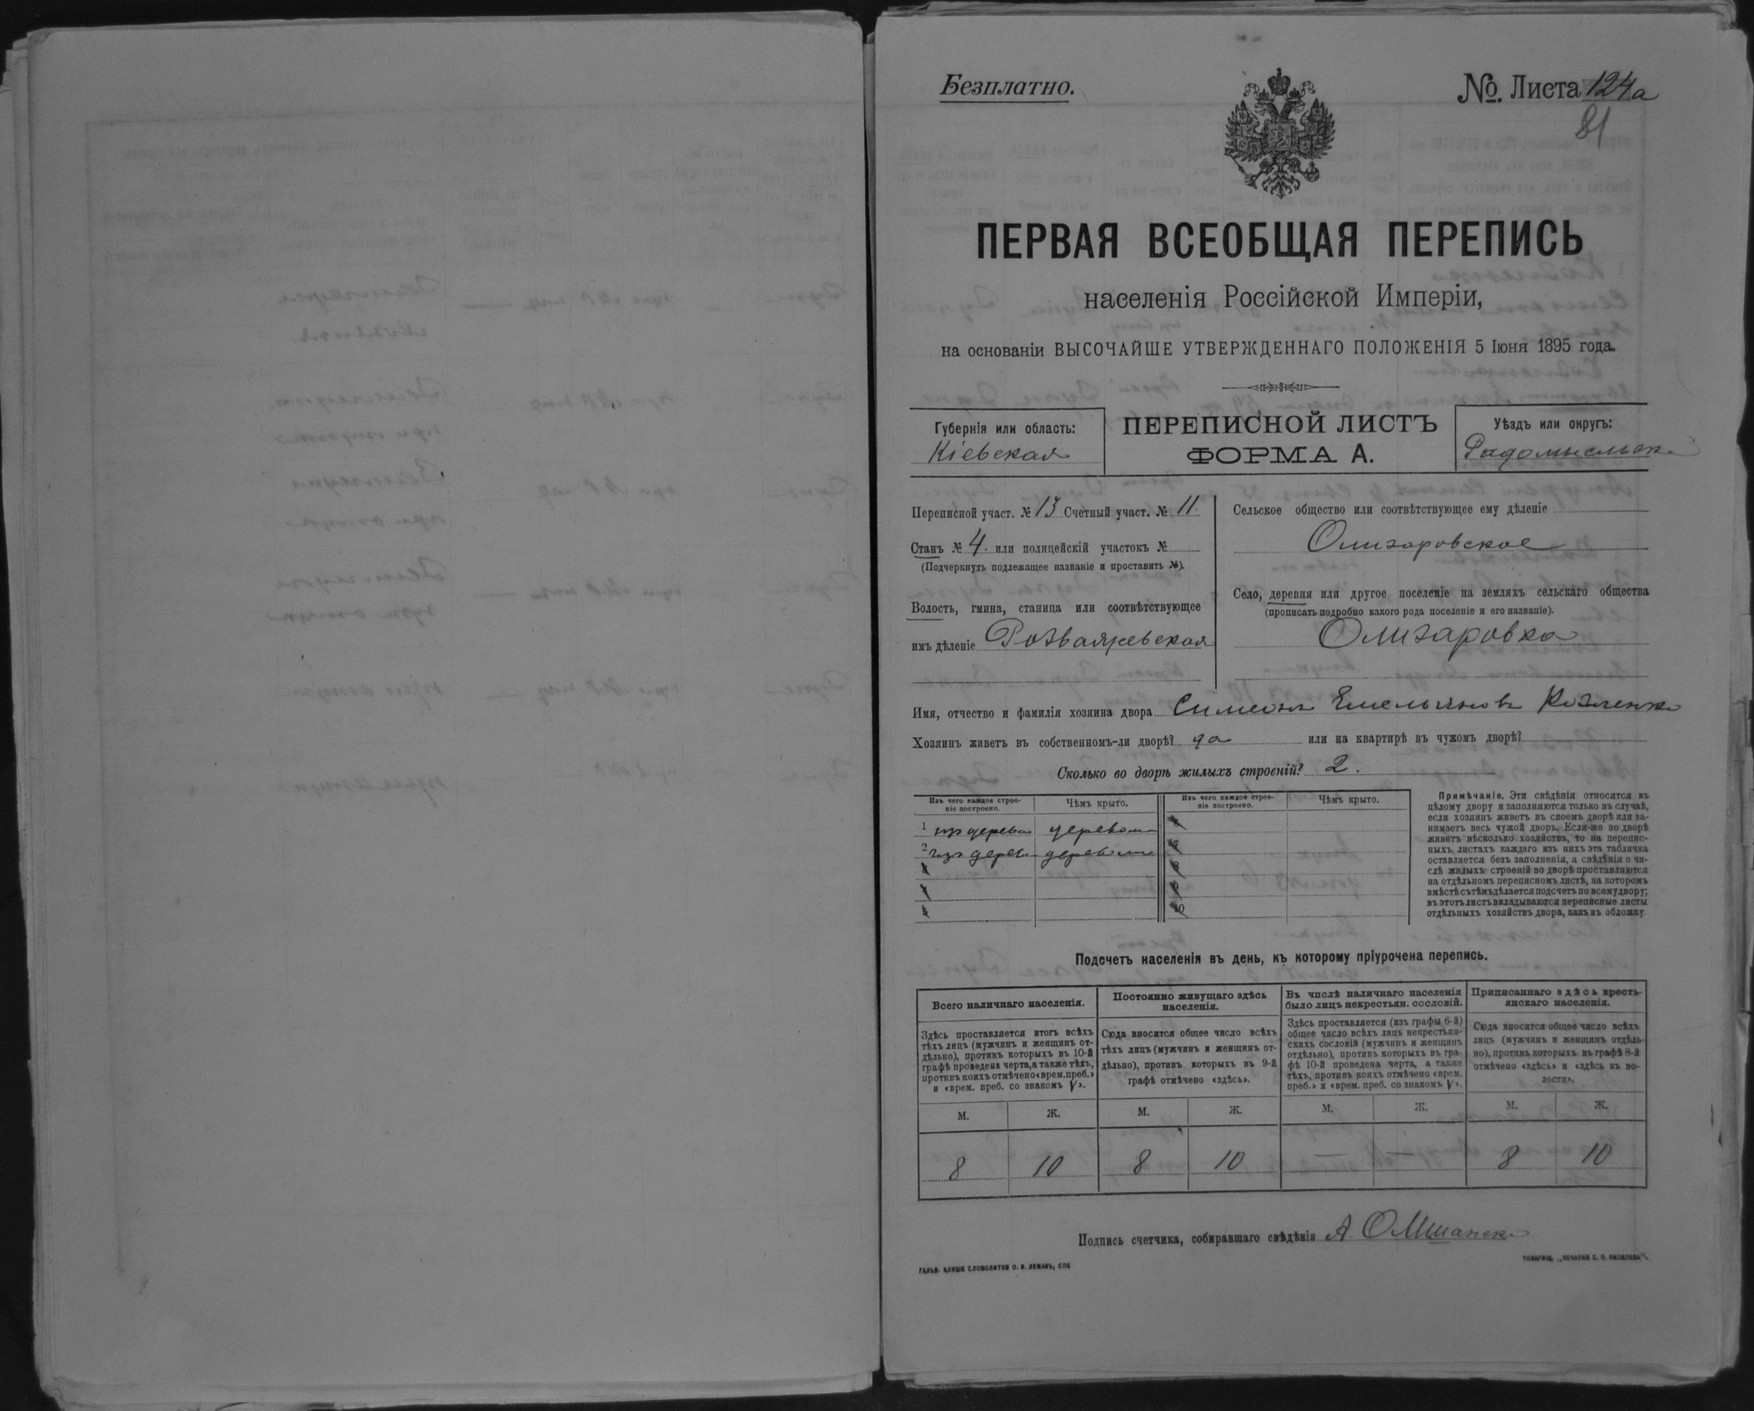 Безплатно.
№ Листа 124а
81
ПЕРВАЯ ВСЕОБЩАЯ ПЕРЕПИСЬ
населенія Россійской Имперіи,
на основаніи ВЫСОЧАЙШЕ УТВЕРЖДЕННАГО ПОЛОЖЕНІЯ 5 Іюня 1895 года.
Губернія или область:
Кіевская
ПЕРЕПИСНОЙ ЛИСТЪ
ФОРМА А.
Уѣздъ или округъ:
Радомысльск
Переписной участ. № 13 Счетный участ. № 11
Станъ № 4. или полицейскій участокъ №
(Подчеркнуть подлежащее названіе и проставить №).
Волость, гмина, станица или соотвѣтствующее
имъ дѣленіе Розважевская
Сельское общество или соотвѣтствующее ему дѣленіе
Олизаровское
Село, деревня или другое поселеніе на земляхъ сельскаго общества
(прописать подробно какого рода поселеніе и его названіе).
Олизаровка
Имя, отчество и фамилія хозяина двора Симеонъ Емельяновъ Козленко
Хозяинъ живетъ въ собственномъ-ли дворѣ? да или на квартирѣ въ чужомъ дворѣ?
Сколько во дворѣ жилыхъ строеній? 2.
Изъ чего каждое строеніе построено.
Чѣмъ крыто.
Изъ чего каждое строеніе построено.
Чѣмъ крыто.
1 изъ дерева деревомъ
2 изъ дерева деревомъ
10
Примѣчаніе. Эти свѣдѣнія относятся къ
цѣлому двору и заполняются только въ случаѣ,
если хозяинъ живетъ въ своемъ дворѣ или за-
нимаетъ весь чужой дворъ. Если-же во дворѣ
живетъ нѣсколько хозяйствъ, то на перепис-
ныхъ листахъ каждаго изъ нихъ эта табличка
оставляется безъ заполненія, а свѣдѣнія о чи-
слѣ жилыхъ строеній во дворѣ проставляются
на отдѣльномъ переписномъ листѣ, на которомъ
вмѣстѣ съ тѣмъ дѣлается подсчетъ по всему двору;
въ этотъ листъ вкладываются переписные листы
отдѣльныхъ хозяйствъ двора, какъ въ обложку.
Подсчетъ населенія въ день, къ которому пріурочена перепись.
Всего наличнаго населенія.
Здѣсь проставляется итогъ всѣхъ
тѣхъ лицъ (мужчинъ и женщинъ от-
дѣльно), противъ которыхъ въ 10-й
графѣ проведена черта, а также тѣхъ,
противъ коихъ отмѣчено «врем. преб.»
и «врем. преб. со знакомъ V».
Постоянно живущаго здѣсь
населенія.
Сюда вносится общее число всѣхъ
тѣхъ лицъ (мужчинъ и женщинъ от-
дѣльно), противъ которыхъ въ 9-й
графѣ отмѣчено «здѣсь».
Въ числѣ наличнаго населенія
было лицъ некрестьян. сословій.
Здѣсь проставляется (изъ графы 6-й)
общее число всѣхъ лицъ некрестьян-
скихъ сословій (мужчинъ и женщинъ
отдѣльно), противъ которыхъ въ гра-
фѣ 10-й проведена черта, а также
тѣхъ, противъ коихъ отмѣчено «врем.
преб.» и «врем. преб. со знакомъ V».
Приписаннаго здѣсь кресть-
янскаго населенія.
Сюда вносится общее число всѣхъ
лицъ (мужчинъ и женщинъ отдѣль-
но), противъ которыхъ въ графѣ 8-й
отмѣчено «здѣсь» и «здѣсь въ во-
лости».
М. Ж. М. Ж. М. Ж. М. Ж.
8 10 8 10 — — 8 10
Подпись счетчика, собиравшаго свѣдѣнія А.
ГАЛЬВ. КЛИШЕ СЛОВОЛИТНИ О. И. ЛЕМАНЪ, СПБ
ТОВАРИЩ. „ПЕЧАТНИ С. П. ЯКОВЛЕВА".